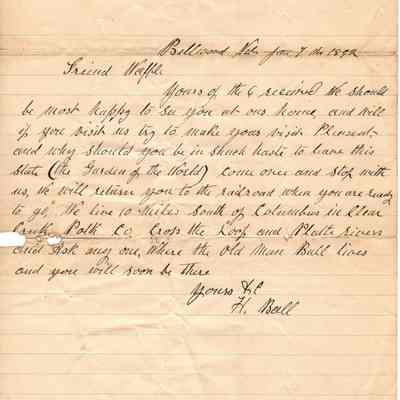 Bellwood Neb Jan 7 th 1892
Friend Waffle
Yours of the 6 received We should
be most happy to see you at our home and will
if you visit us try to make your visit Plesent
and why should you be in shush haste to leave this
State (the Garden of the World) come once and stop with
us, We will return you to the railroad when you are ready
to go, We live 10 miles South of Columbus in Clear
Creek Polk Co Cross the Loop and Platte rivers
and Ask any one, Where the Old Man Ball lives
and you will soon be there
Yours &c
H. Ball